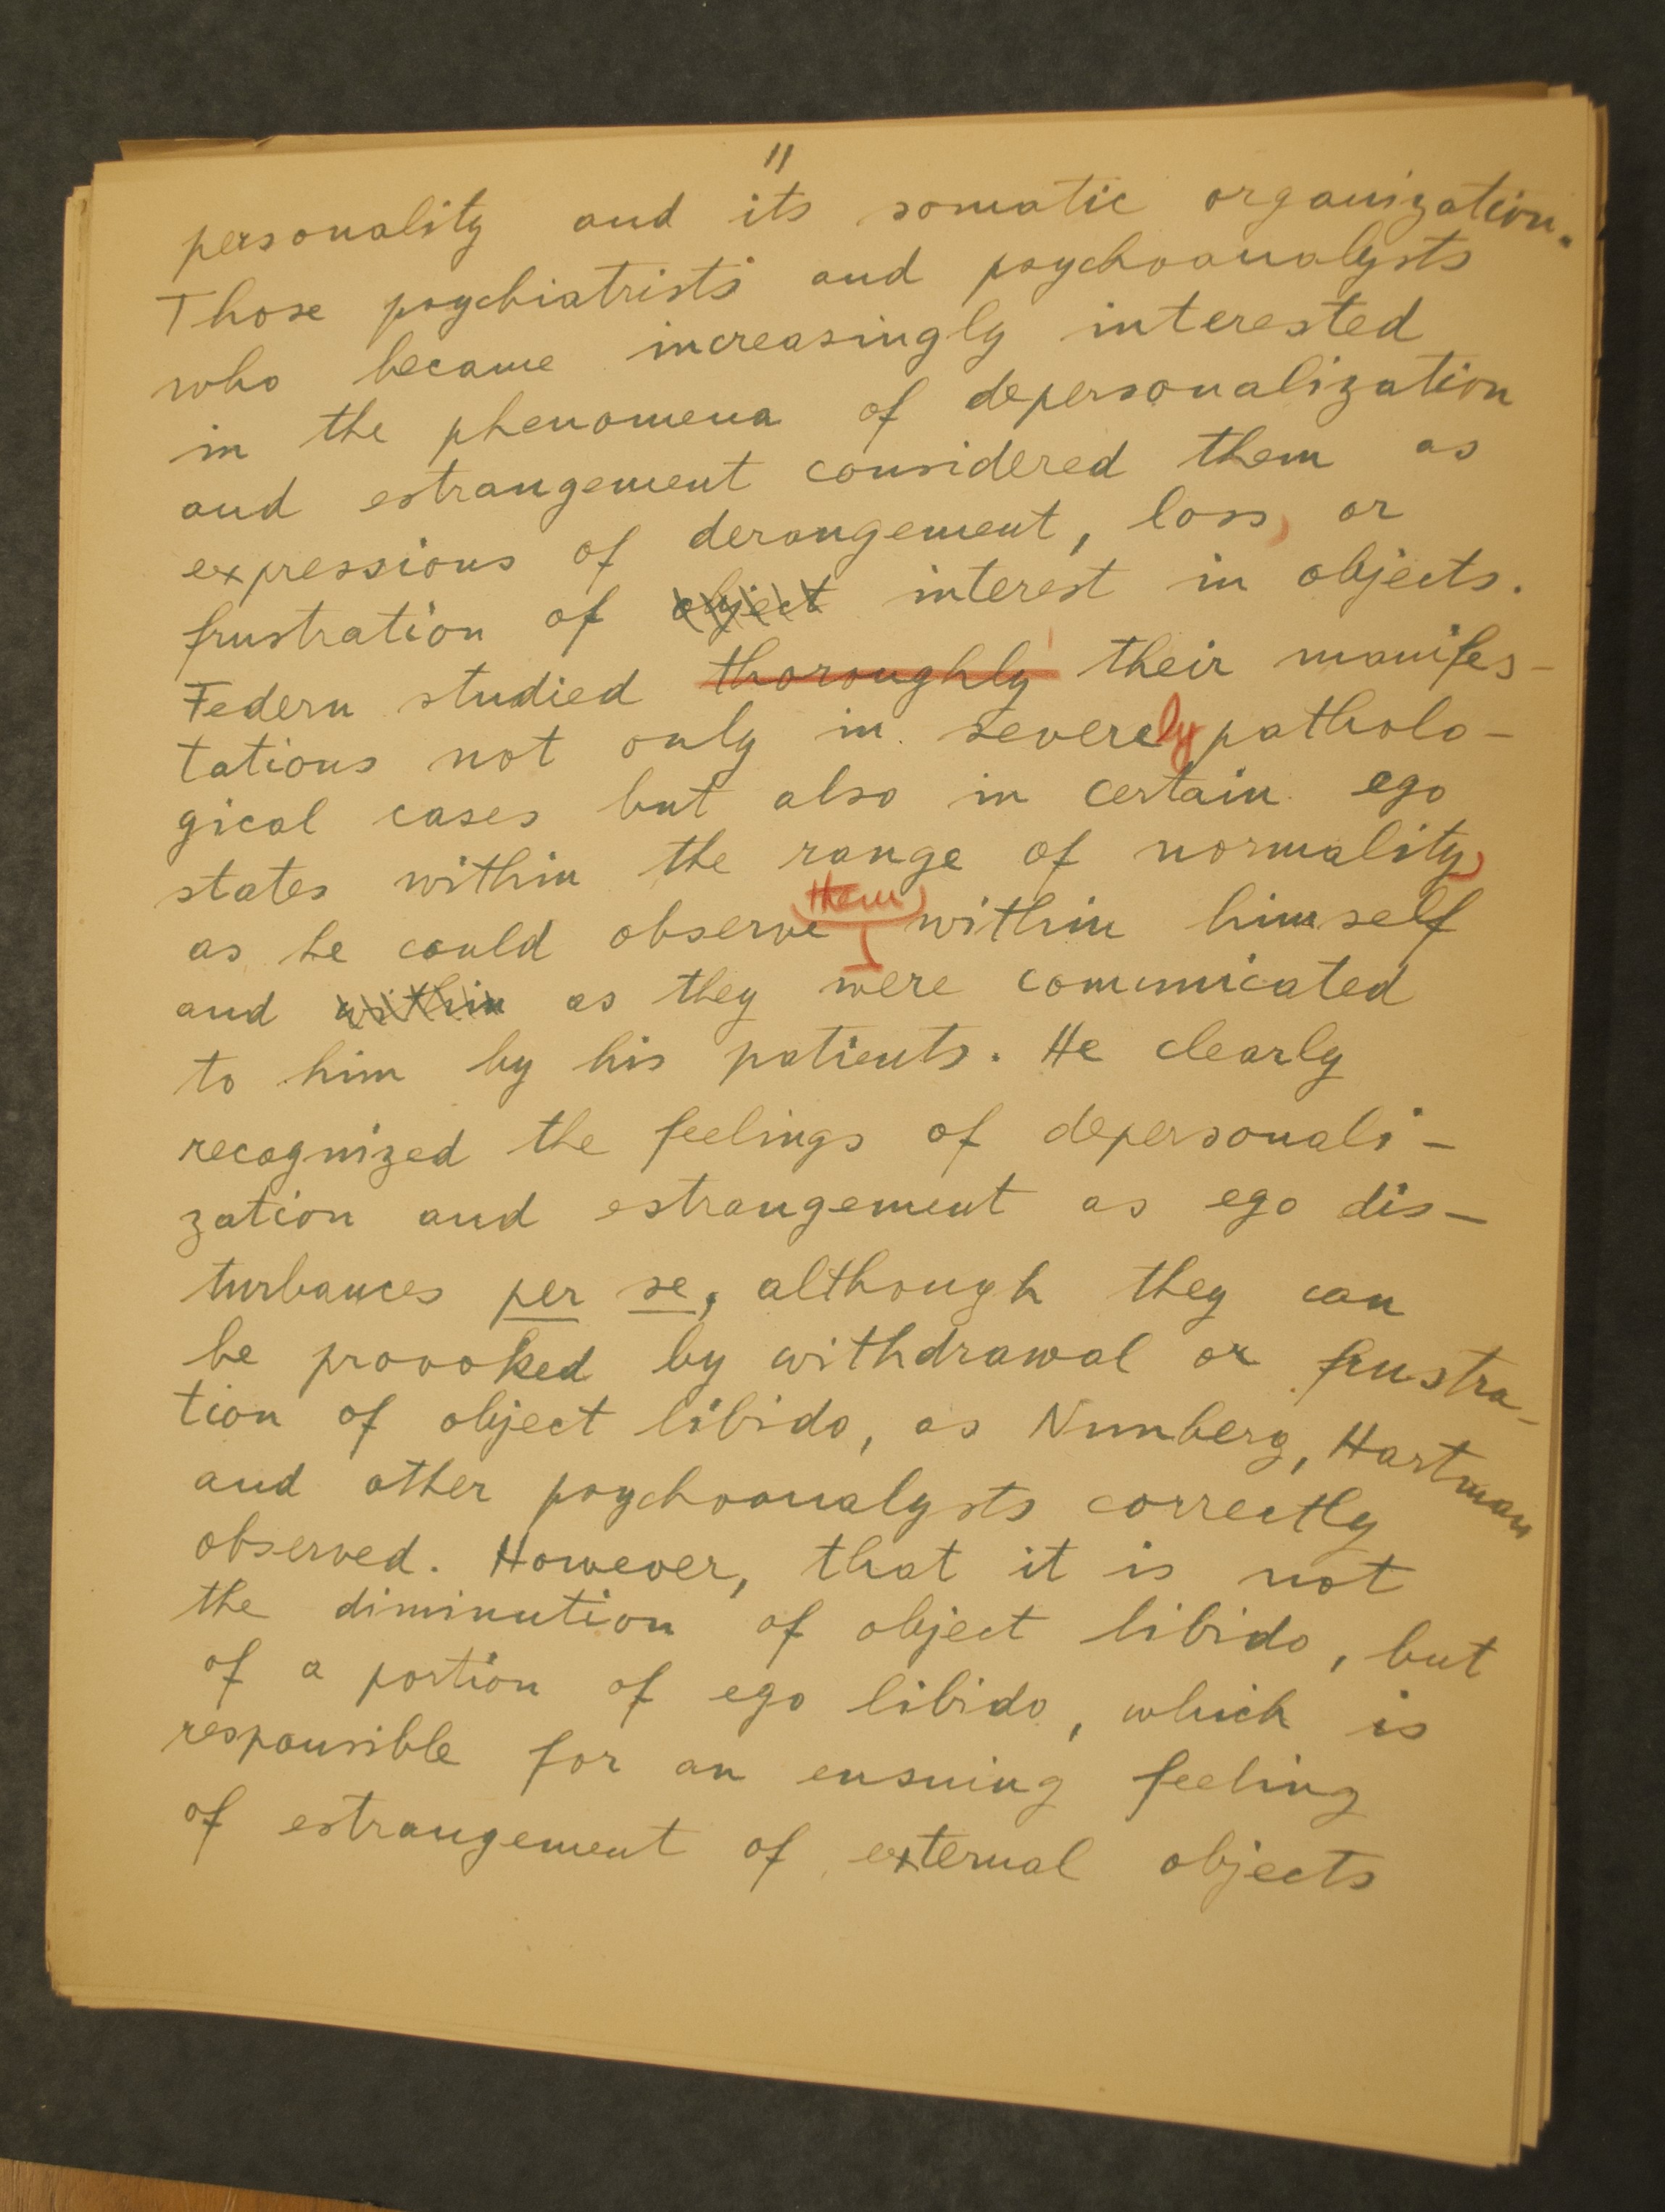 11
personality and its somatic organization.
Those psychiatrists and psychoanalysts
who became increasingly interested
in the phenomena of depersonalization
and estrangement considered them as
expressions of derangement, loss, or
frustration of object interest in objects.
Federn studied thoroughly their manifes-
tations not only in severely patholo-
gical cases but also in certain ego
states within the range of normality,
as he could observe them within himself
and within as they were communicated
to him by his patients. He clearly
recognized the feelings of depersonali-
zation and estrangement as ego dis-
turbances per se, although they can
be provoked by withdrawal or frustra-
tion of object libido, as Nunberg, Hartman
and other psychoanalysts correctly
observed. However, that it is not
the diminution of object libido, but
of a portion of ego libido, which is
responsible for an ensuing feeling
of estrangement of external objects